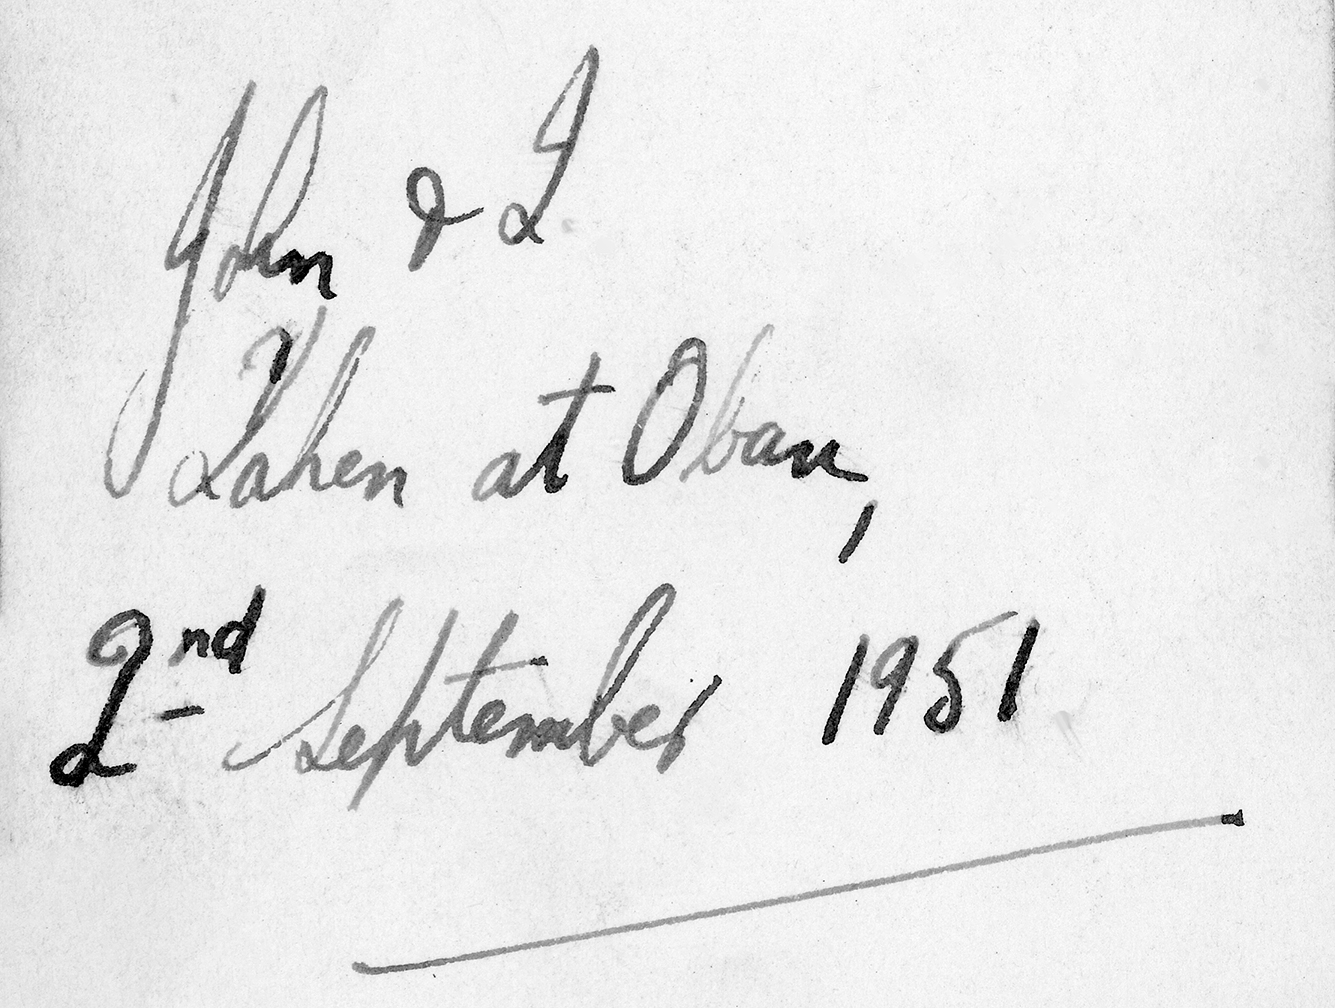 John & I
Taken at Oban,
2nd September 1951